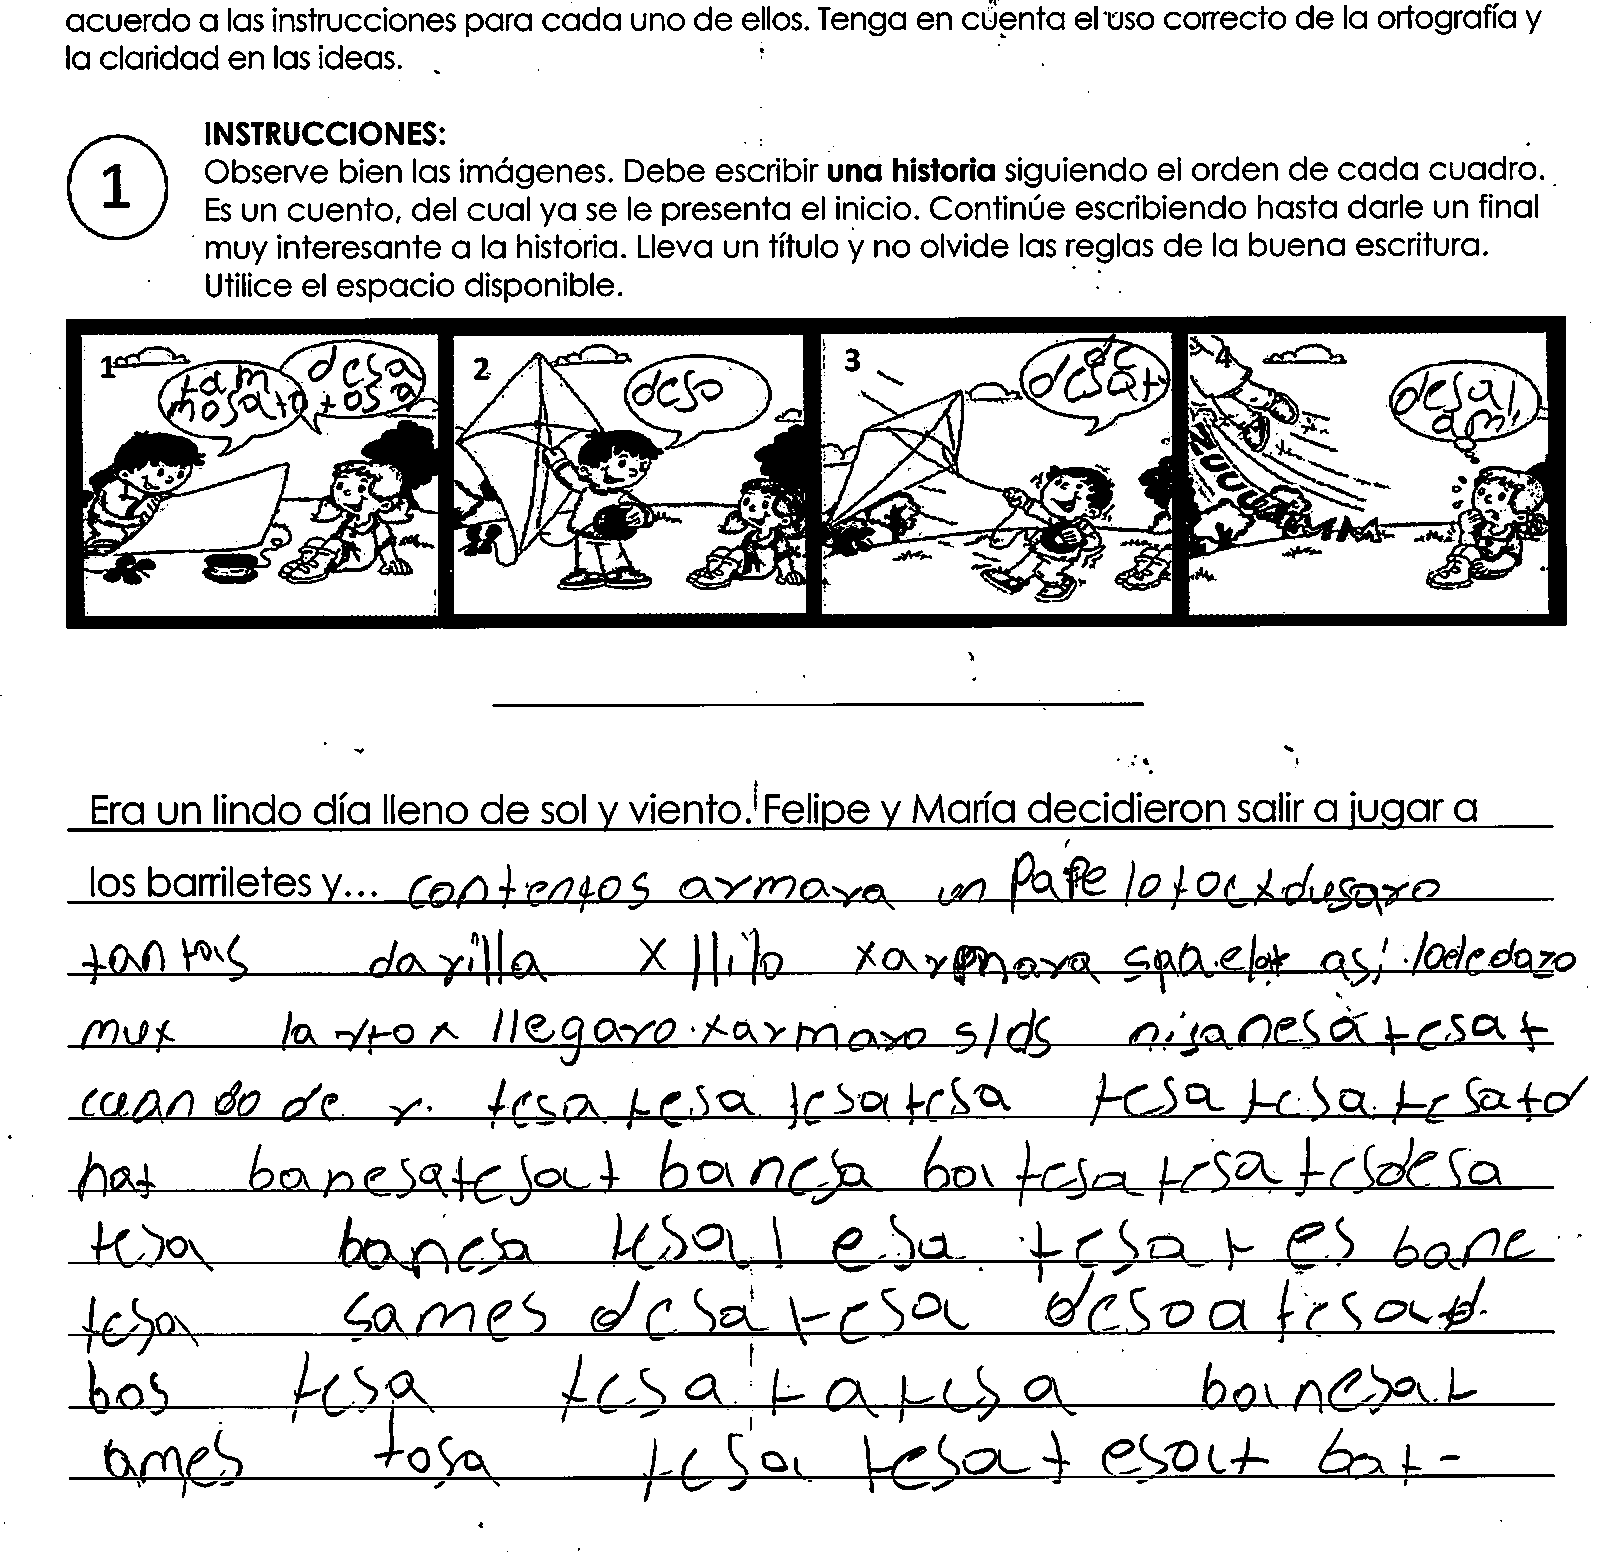 acuerdo a las instrucciones para cada uno de ellos. Tenga en cuenta el uso correcto de la ortografía y
la claridad en las ideas.
1
INSTRUCCIONES:
Observe bien las imágenes. Debe escribir una historia siguiendo el orden de cada cuadro.
Es un cuento, del cual ya se le presenta el inicio. Continúe escribiendo hasta darle un final
muy interesante a la historia. Lleva un título y no olvide las reglas de la buena escritura.
Utilice el espacio disponible.
1
tam
mosato
desa
tosa
2
deso
3
de
desat
4
desal
ami
Era un lindo día lleno de sol y viento. Felipe y María decidieron salir a jugar a
los barriletes y... contentos armara un
tan darilla x llilo asi
mux llegaro
cuando de r. tesa tesa tesa tesa tesa tesa tesato
hat banesatesat banesa ba tesa tesa tesdesa
tesa banesa tesal esa tesat es bane
tesa sames desa tesa
bos tesa tesa tatesa banesat
ames tosa tesa tesat esat bat-